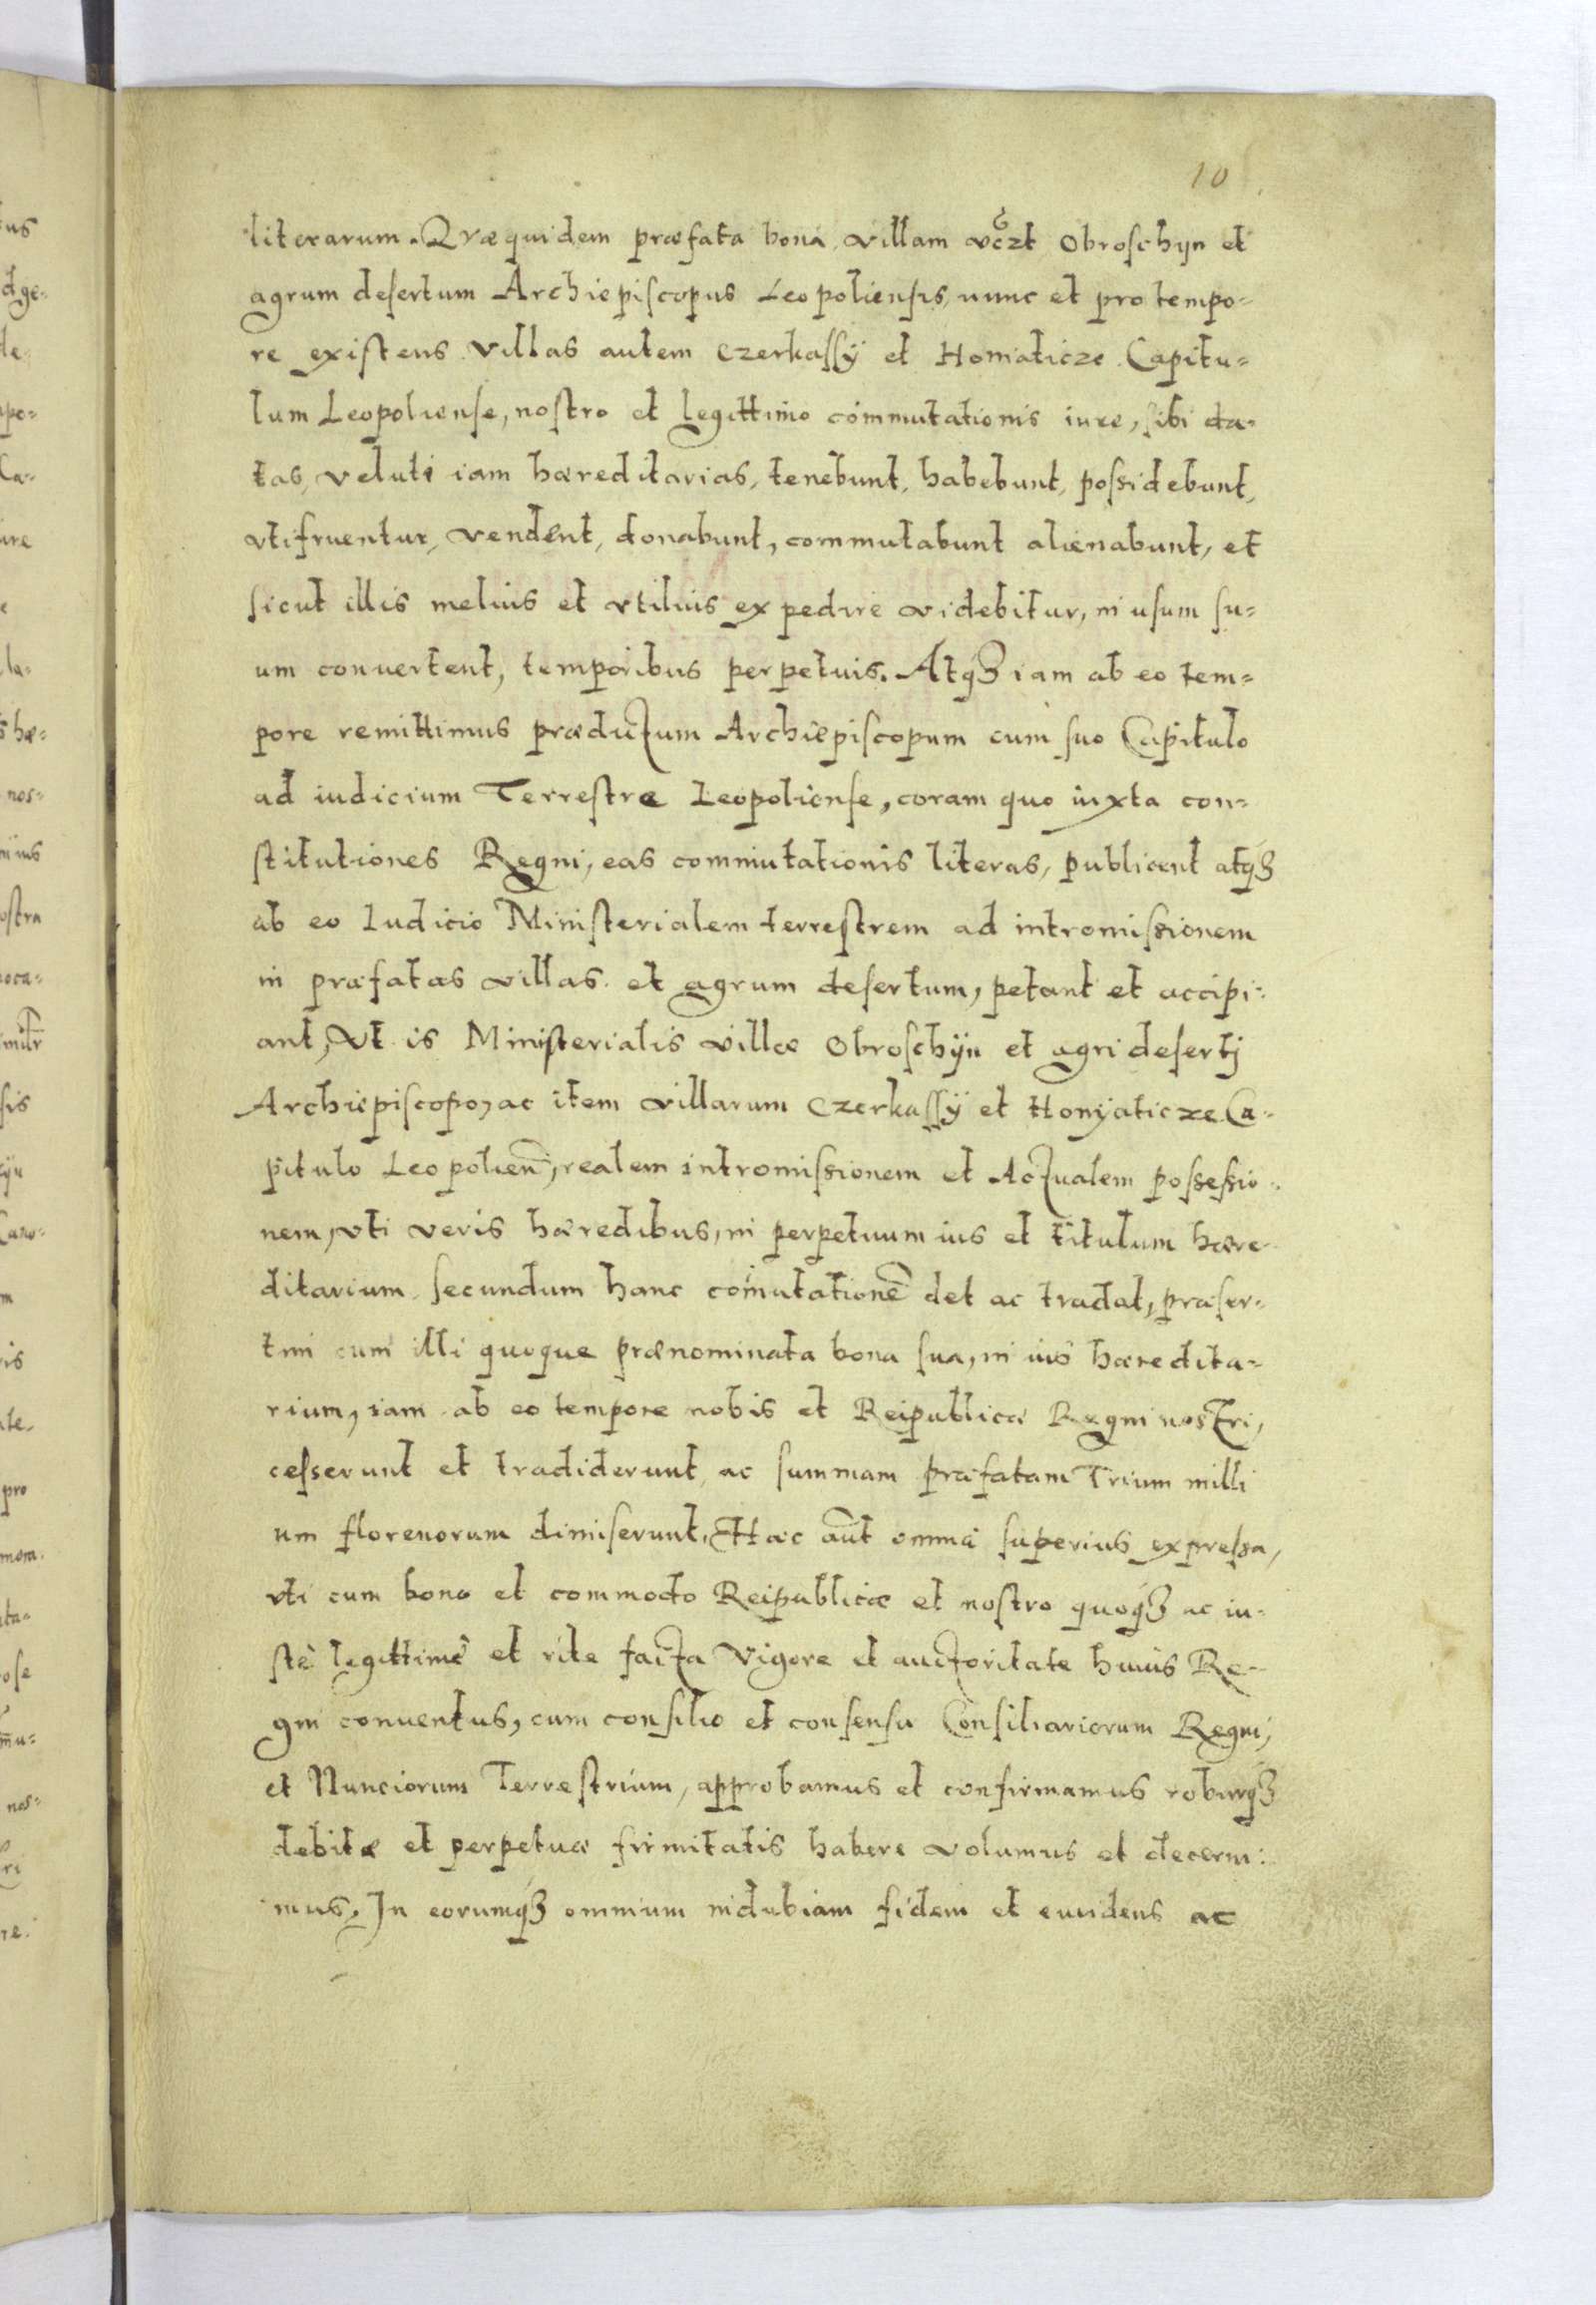 10
literarum. Quæquidem præfata bona villam vczt Obroschyn et
agrum desertum Archiepiscopus Leopoliensis, nunc et pro tempo=
re existens villas autem Czerkassÿ et Homaticze Capitu=
lum Leopoliense, nostro et legittimo commutationis iure, sibi da=
tas, veluti iam hæreditarias, tenebunt, habebunt, possidebunt,
vtifruentur, vendent, donabunt, commutabunt alienabunt, et
sicut illis melius et vtilius expedire videbitur, in usum su=
um conuertent, temporibus perpetuis. Atqȝ iam ab eo tem=
pore remittimus prædictum Archiepiscopum cum suo Capitulo
ad iudicium Terrestre Leopoliense, coram quo iuxta con=
stitutiones Regni, eas commutationis literas, publicent atqȝ
ab eo Iudicio Ministerialem terrestrem ad intromissionem
in præfatas villas et agrum desertum, petant et accipi=
ant, Vt is Ministerialis villæ Obroschÿn et agri desertj
Archiepiscopo, ac item villarum Czerkassÿ et Honÿaticze Ca=
pitulo Leopolien̄, realem intromissionem et Actualem possessio=
nem, vti veris hæredibus, in perpetuum ius et titulum hære
ditarium secundum hanc com̄utationē det ac tradat, præser=
tim cum illi quoque prænominata bona sua, in ius hæredita=
rium, iam ab eo tempore nobis et Reipublicæ Regni nostri,
cesserunt et tradiderunt ac summam præfatam Trium milli
um florenorum dimiserunt, Hæc aūt omnia superius expressa,
vti cum bono et commodo Reipublicæ et nostro quoqȝ ac iu=
stè legittimè et rite facta Vigore et auctoritate huius Re=
gni conuentus, cum consilio et consensu Consiliariorum Regni,
et Nunciorum Terrestrium, approbamus et confirmamus roburqȝ
debitæ et perpetuæ firmitatis habere volumus et decerni=
mus, In eorumqȝ omnium indubiam fidem et euidens ac